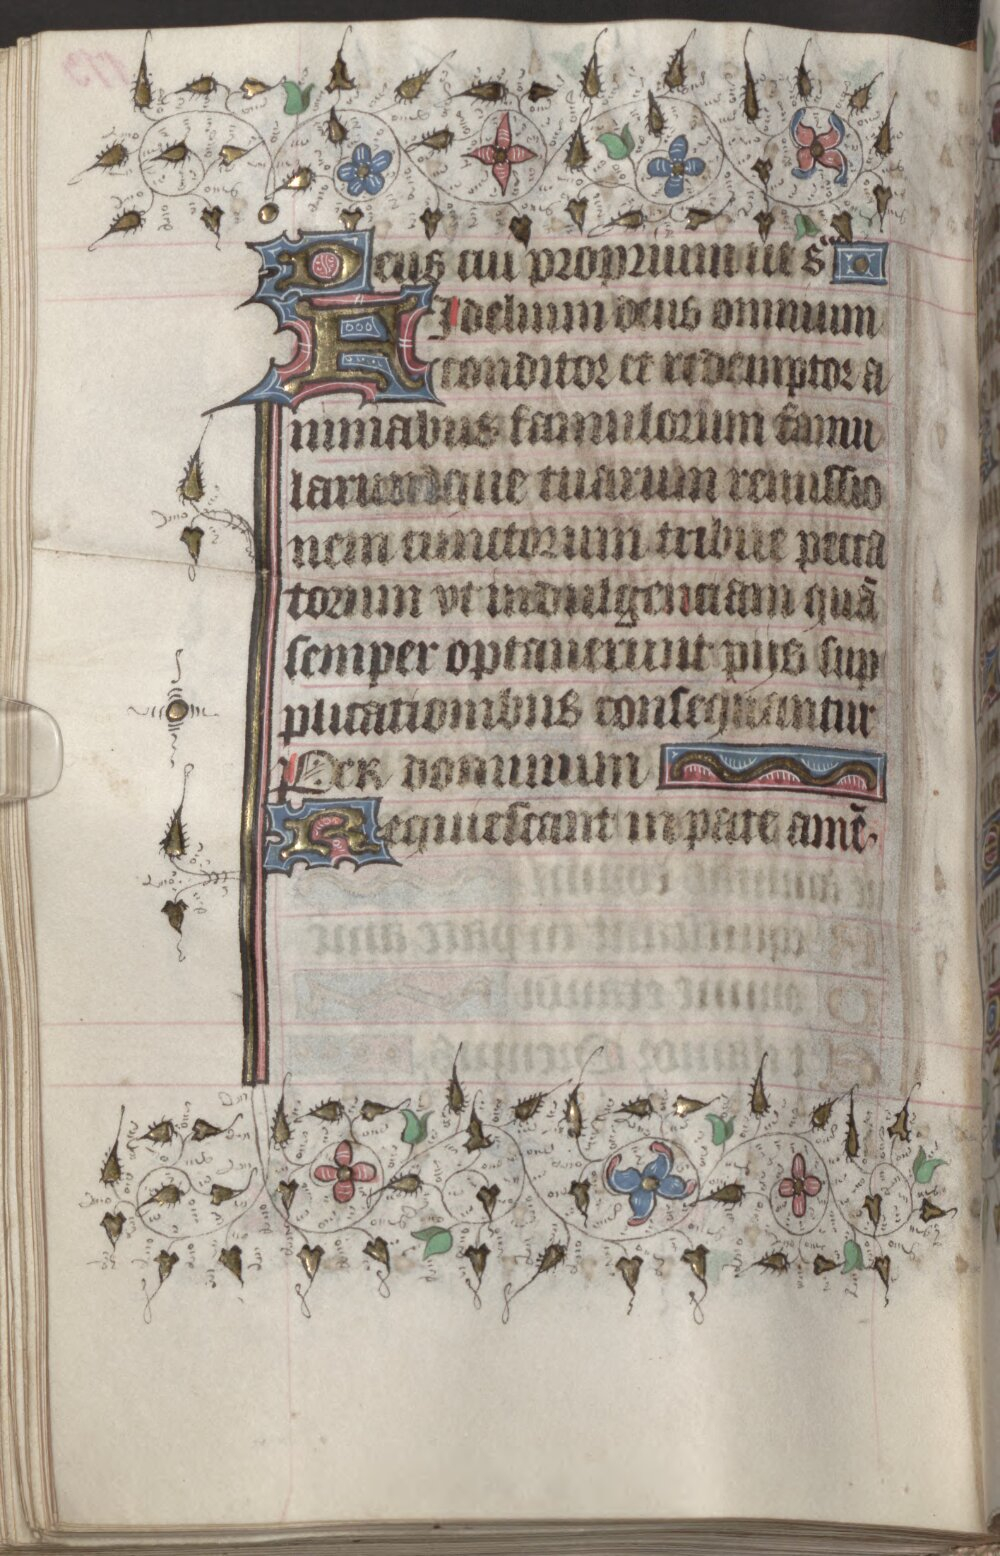 Deus cui proprium ue s
Fidelium deus omnium
conditor et redemptor a
nimabus famulorum famu
larumque tuarum remissio
nem cunctorum tribue pecca
torum ut indulgenciam quã
semper optauerunt pijs sup
plicationibus consequantur
Per dominum
Requiescant in pace amẽ.